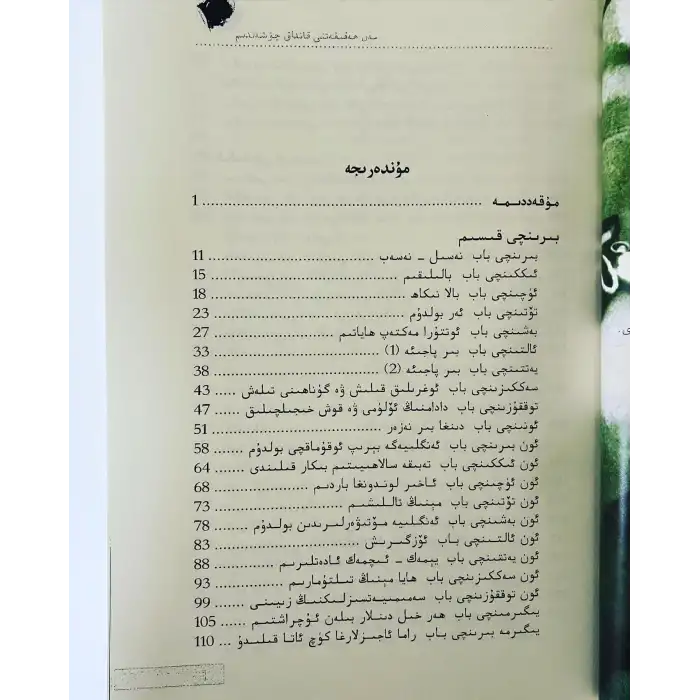 مەن ھەقىقەتنى قانداق چۈشەندىم
مۇندەرىجە
مۇقەددىمە ........ 1
بىرىنچى قىسىم
بىرىنچى باب نەسىل - نەسەب ........ 11
ئىككىنچى باب بالىلىقىم ........ 15
ئۈچىنچى باب بالا نىكاھ ........ 18
تۆتىنچى باب ئەر بولدۇم ........ 23
بەشىنچى باب ئوتتۇرا مەكتەپ ھاياتىم ........ 27
ئالتىنچى باب بىر پاجىئە (1) ........ 33
يەتتىنچى باب بىر پاجىئە (2) ........ 38
سەككىزىنچى باب ئوغرىلىق قىلىش ۋە گۇناھىنى تىلەش ..... 43
توققۇزىنچى باب دادامنىڭ ئۆلۈمى ۋە قوش خىجىلچىلىق ..... 47
ئونىنچى باب دىنغا بىر نەزەر ........ 51
ئون بىرىنچى باب ئەنگلىيەگە بېرىپ ئوقۇماقچى بولدۇم ........ 58
ئون ئىككىنچى باب تەبىقە سالاھىيىتىم بىكار قىلىندى ....... 64
ئون ئۈچىنچى باب ئاخىر لوندونغا باردىم ........ 68
ئون تۆتىنچى باب مېنىڭ تاللىشىم ........ 73
ئون بەشىنچى باب ئەنگلىيە مۆتىۋەرلىرىدىن بولدۇم ........ 78
ئون ئالتىنچى باب ئۆزگىرىش ........ 83
ئون يەتتىنچى باب يېمەك - ئىچمەك ئادەتلىرىم ........ 88
ئون سەككىزىنچى باب ھايا مېنىڭ تىلتۇمارىم ........ 93
ئون توققۇزىنچى باب سەمىمىيەتسىزلىكنىڭ زىيىنى ....... 99
يىگىرمىنچى باب ھەر خىل دىنلار بىلەن ئۇچراشتىم ..... 105
يىگىرمە بىرىنچى باب راما ئاجىزلارغا كۈچ ئاتا قىلىدۇ ... 110